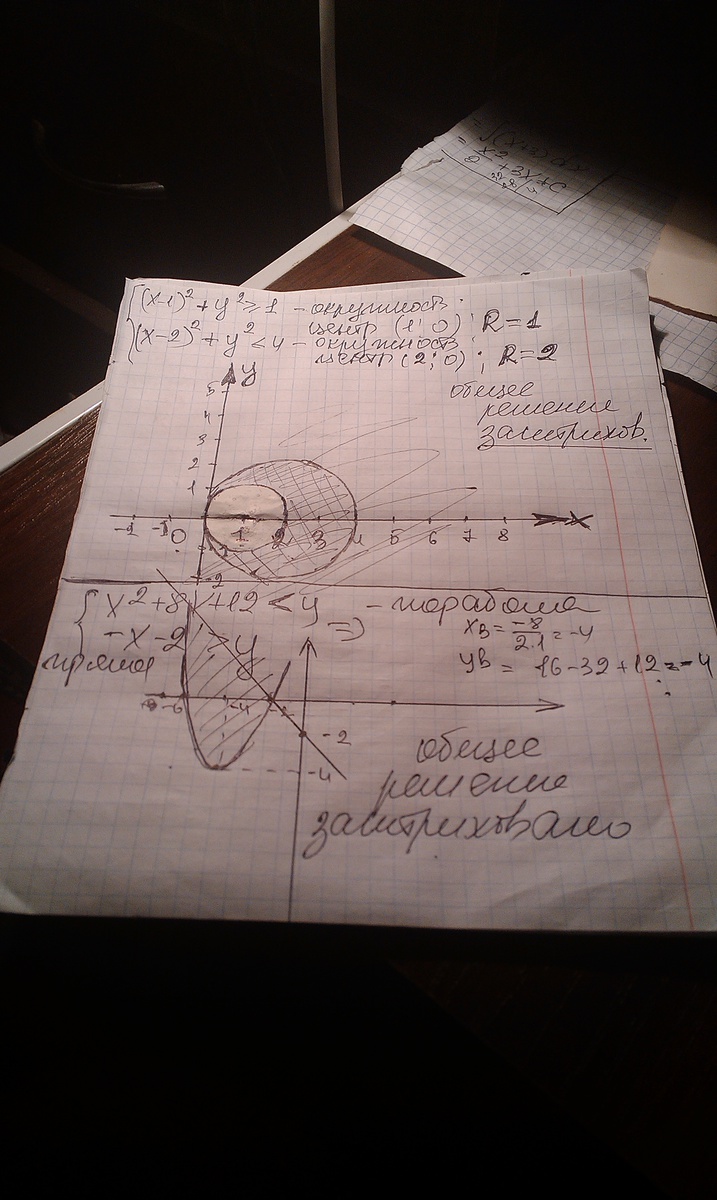 = ∫(x+3)dx
= x²/2 + 3x + C
{(x-1)² + y² ≥ 1 - окружность
центр (1; 0); R=1
(x-2)² + y² < 4 - окружность
центр (2; 0); R=2
y
общее
решение
заштрихов.
5
4
3
2
1
-1 0 1 2 3 4 5 6 7 8 x
-2
{x² + 8x + 12 < y - парабола
-x - 2 > y =>
прямая
xв = -8/2·1 = -4
yв = 16 - 32 + 12 = -4
-6 -4
-2
-4
общее
решение
заштриховано